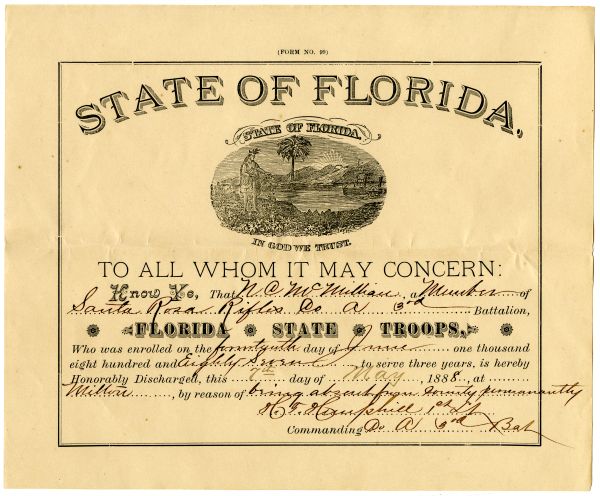 (FORM NO. 99)
STATE OF FLORIDA,
STATE OF FLORIDA
IN GOD WE TRUST.
TO ALL WHOM IT MAY CONCERN:
Know Ye, That N. C. McMillan, a Member of
Santa Rosa Rifles Co A 3rd Battalion,
FLORIDA STATE TROOPS,
Who was enrolled on the day of June one thousand
eight hundred and eighty Seven to serve three years, is hereby
Honorably Discharged, this 7th day of May, 1888, at
Milton, by reason of being absent from County permanently
H. T. Hemphill 1st Lt
Commanding Co A 3rd Bat